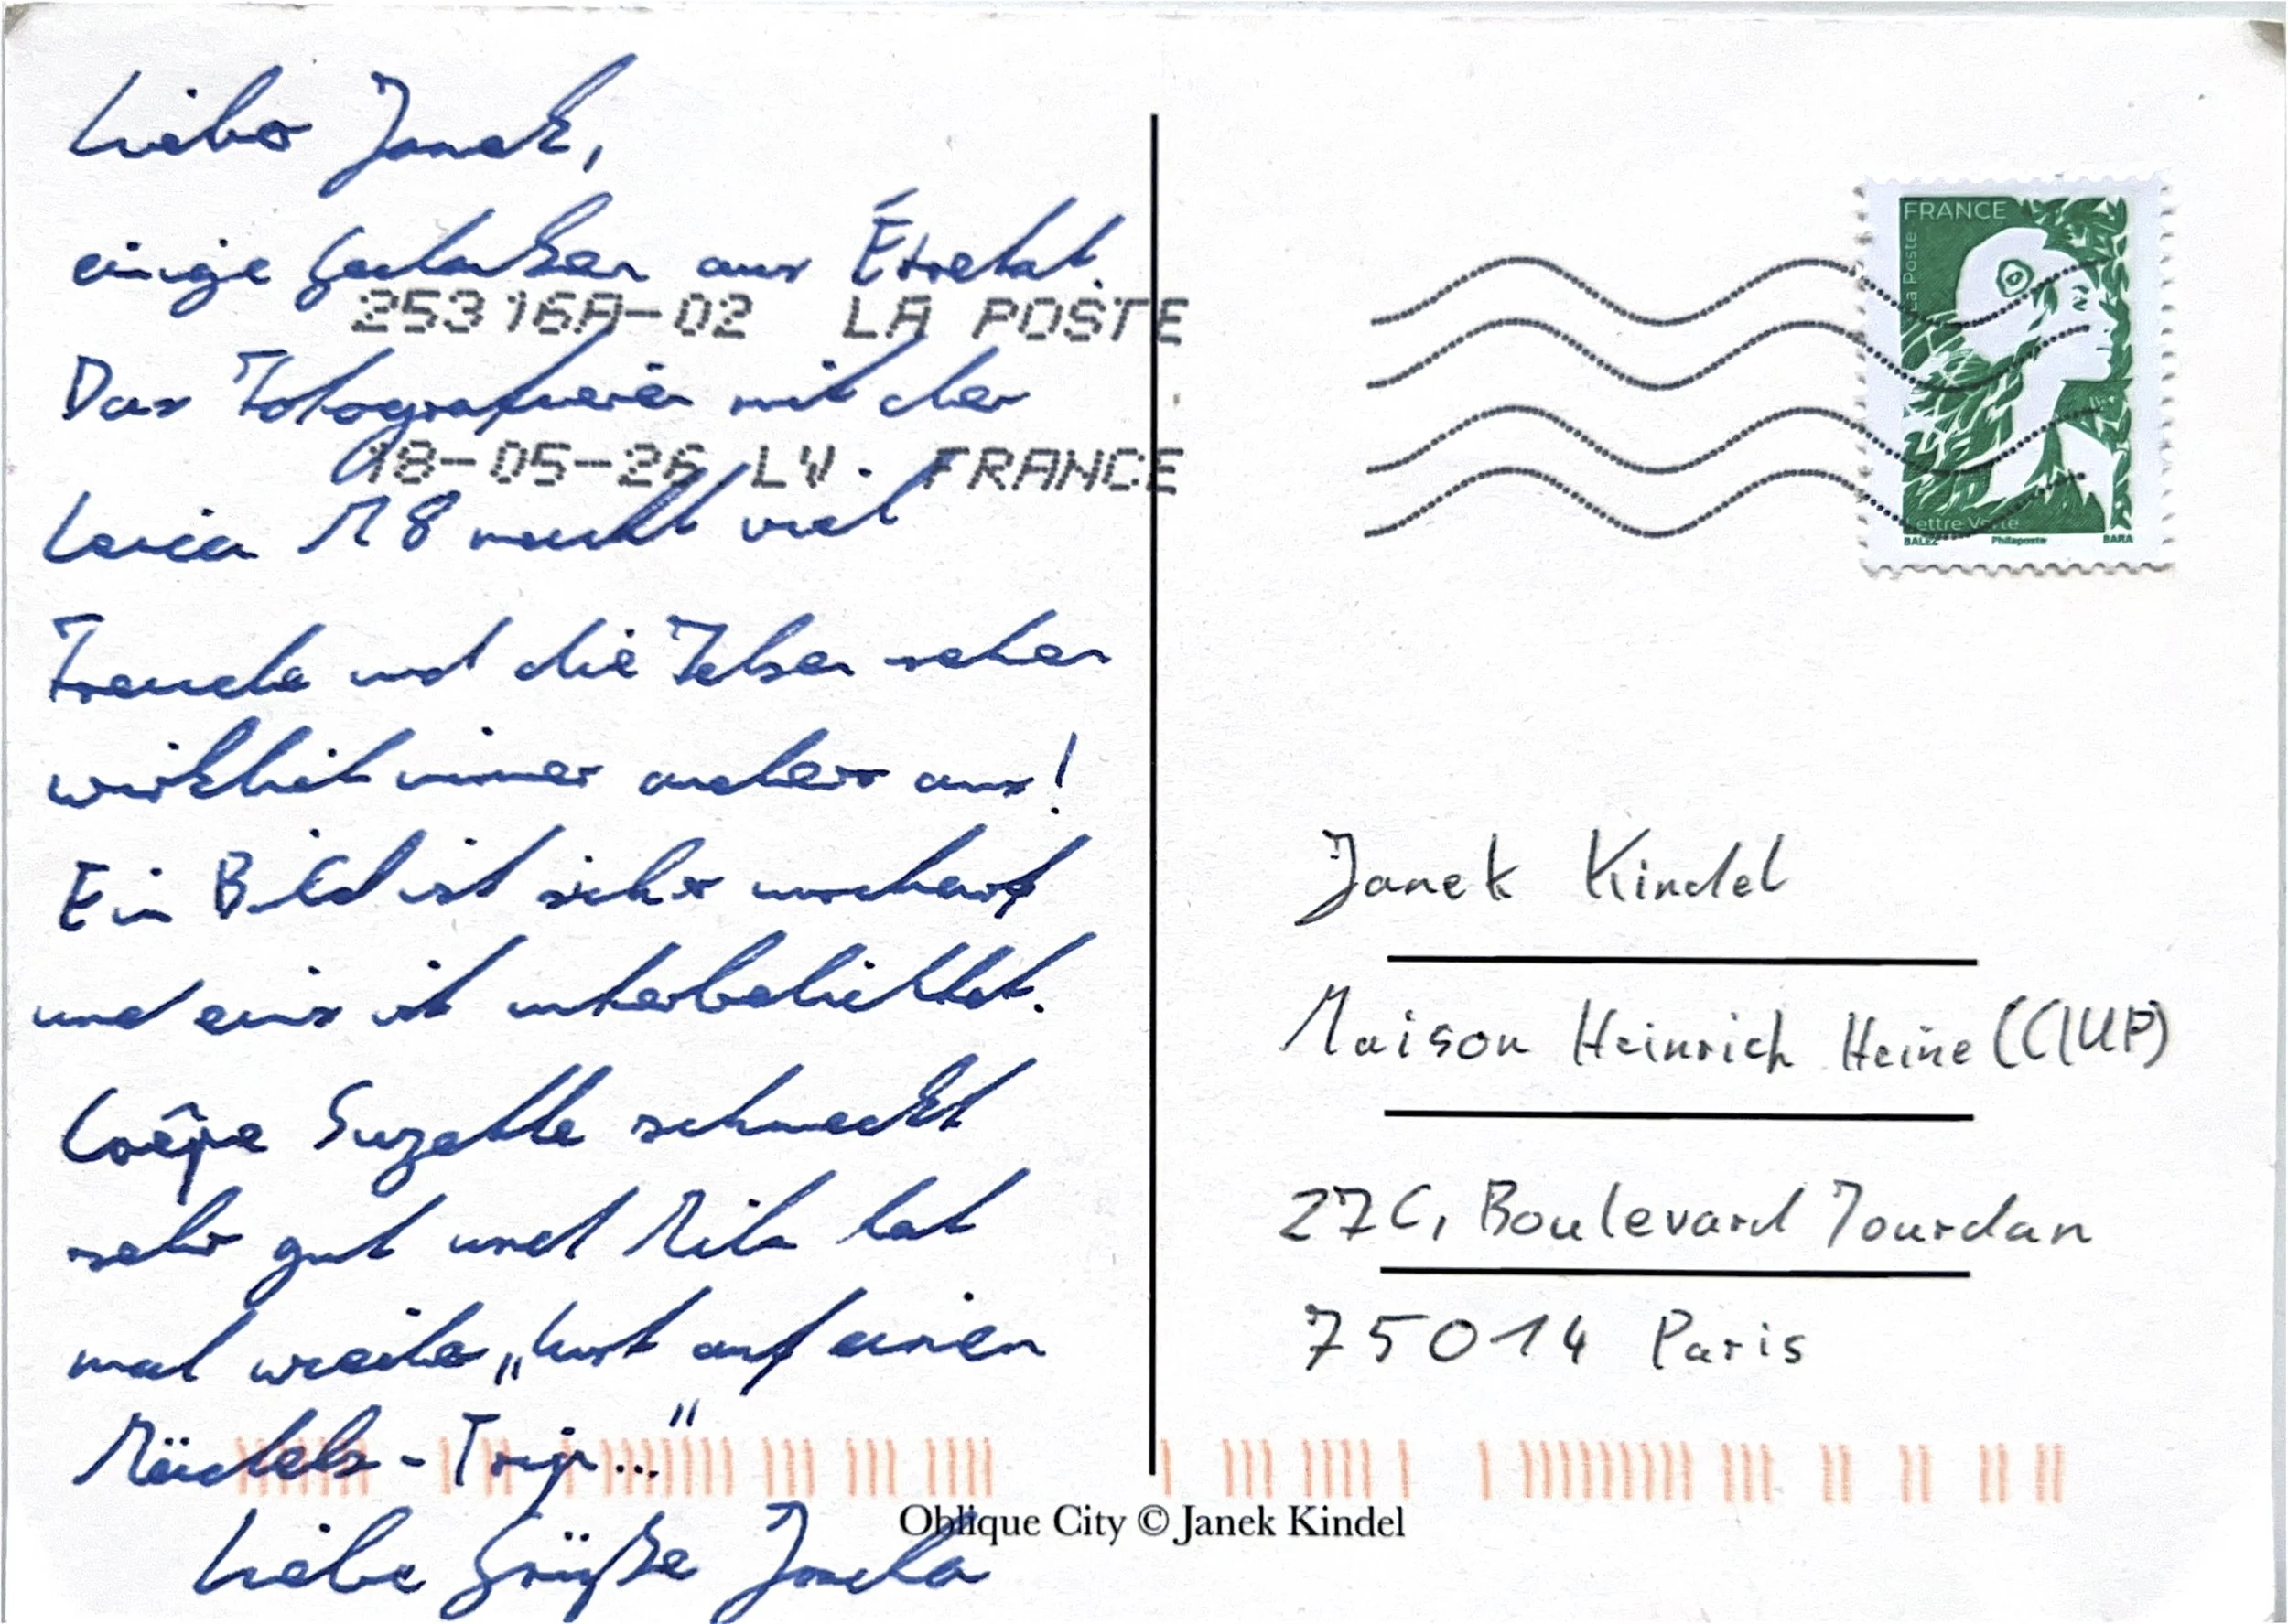 Lieber Janek,
einige Gedanken aus Étretat.
25316A-02 LA POSTE
Das Fotografieren mit der
18-05-26 LV. FRANCE
Leica M8 macht viel
Freude und die Felsen sehen
wirklich immer anders aus!
Ein Bild ist sicher unscharf
und eins ist unterbelichtet.
Crêpe Suzette schmeckt
sehr gut und Mila hat
mal wieder „Lust auf einen
Mädels-Trip..."
Liebe Grüße
FRANCE
La Poste
Lettre Verte
BALEZ Philaposte BARA
Janek Kindel
Maison Heinrich Heine (CIUP)
27C, Boulevard Jourdan
75014 Paris
Oblique City © Janek Kindel